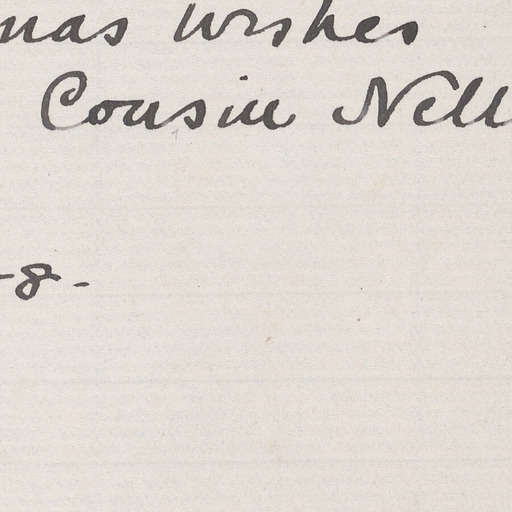 mas wishes
Cousin Nell
-8-